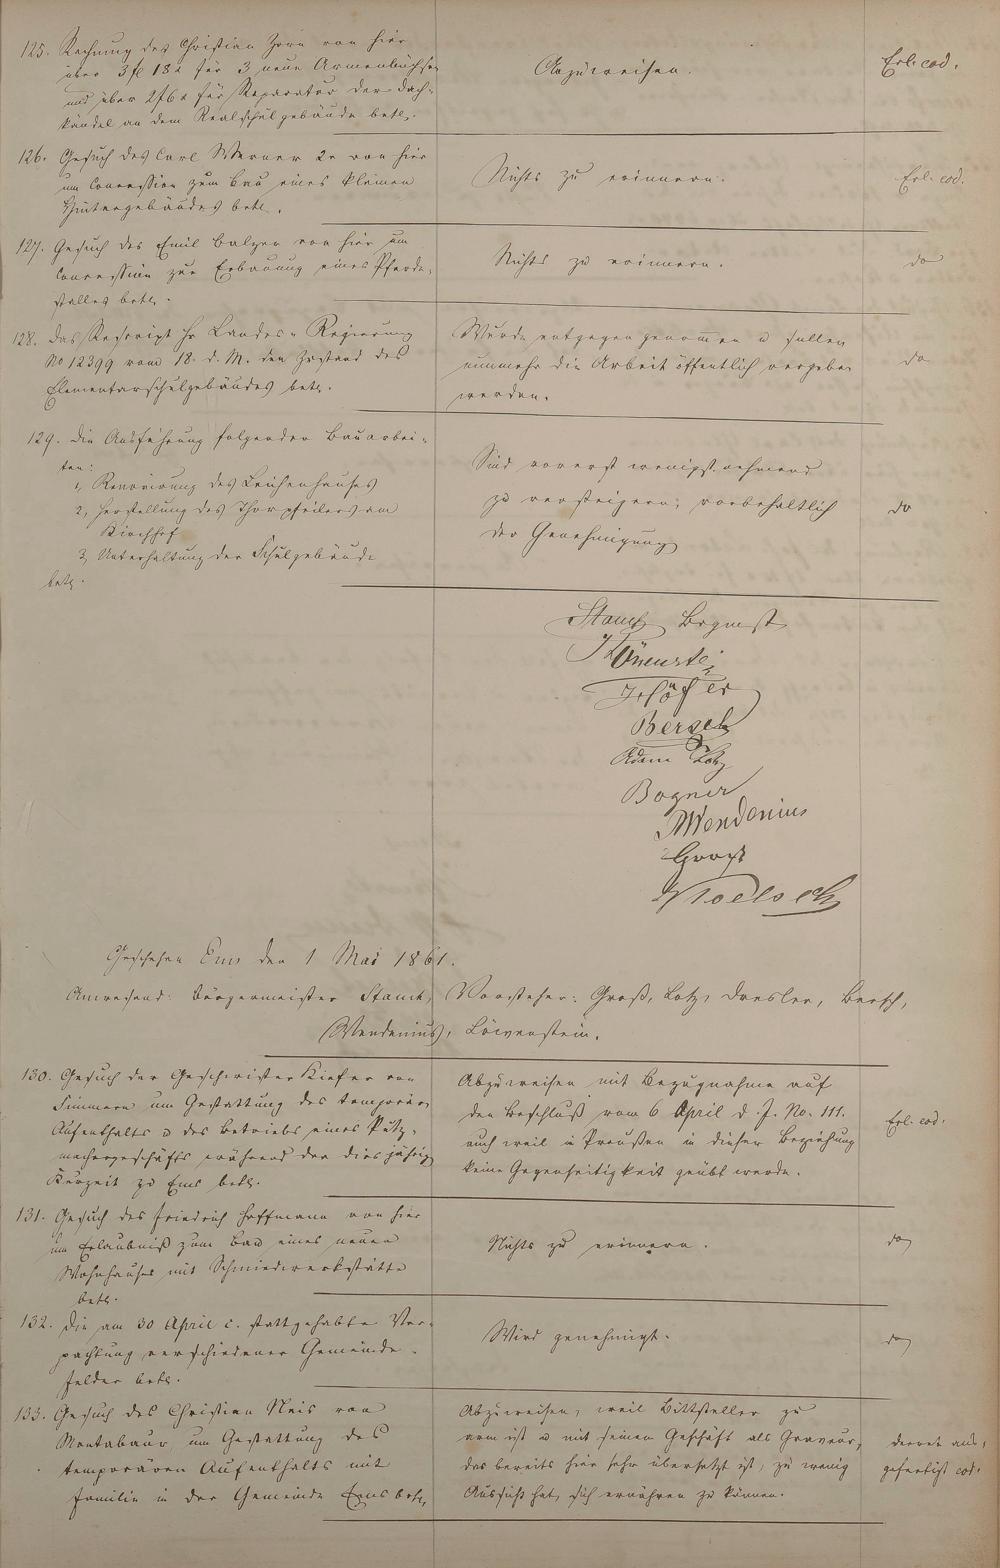 125. Rechnung des Christian Zorn von hier
über 3 fl 18 x für 3 neue Armenbüchsen
und über 2 f 6 x für Reparatur der Dach-
kändel an dem Realschulgebäude betr.
Abzuweisen.
Erl. eod.
126. Gesuch des Carl Werner 2r von hier
um Concession zum Bau eines kleinen
Hintergebäudes betr.
Nichts zu erinnern.
Erl. eod.
127. Gesuch des Emil Balzer von hier um
Concession zur Erbauung eines Pferde-
stalles betr.
Nichts zu erinnern.
do
128. Das Rescript Hr. Landes-Regierung
No 12399 vom 18. d. M. den Zustand des
Elementarschulgebäudes betr.
Wurde entgegengenommen u sollen
nunmehr die Arbeit öffentlich vergeben
werden.
do
129. Die Ausführung folgender Bauarbei-
ten:
1, Renovirung des Leichenhauses
2, Herstellung des Thorpfeilers am
Kirchhof
3, Unterhaltung der Schulgebäude
betr.
Sind vorerst wenigstnehmend
zu versteigern, vorbehaltlich
der Genehmigung
do
Stamt Brgmst
Löwenstein
Bersch
Adam Lotz
Bogner
Wendenius
Groß
Geschehen Ems den 1 Mai 1861.
Anwesend: Bürgermeister Stamt, Vorsteher: Groß, Lotz, Dresler, Bersch,
Wendenius, Löwenstein.
130. Gesuch der Geschwister Kiefer von
Simmern um Gestattung des temporären
Aufenthalts u des Betriebs eines Putz-
machergeschäfts während der diesjährigen
Kurzeit zu Ems betr.
Abzuweisen mit Bezugnahme auf
den Beschluß vom 6 April d. J. No. 111.
auch weil in Preußen in dieser Beziehung
keine Gegenseitigkeit geübt werde.
Erl. eod.
131. Gesuch des Friedrich Hoffmann von hier
um Erlaubniß zum Bau eines neuen
Wohnhauses mit Schmiedewerkstätte
betr.
Nichts zu erinnern.
do
132. Die am 30 April c. stattgehabte Ver-
pachtung verschiedener Gemeinde-
felder betr.
Wird genehmigt.
do
133. Gesuch des Christian Neis von
Montabaur um Gestattung des
temporären Aufenthalts mit
Familie in der Gemeinde Ems betr.
Abzuweisen, weil Bittsteller zu
arm ist u mit seinem Geschäft als Graveur,
das bereits hier sehr übersetzt ist, zu wenig
Aussicht hat, sich ernähren zu können.
Decret aus-
gefertigt eod.